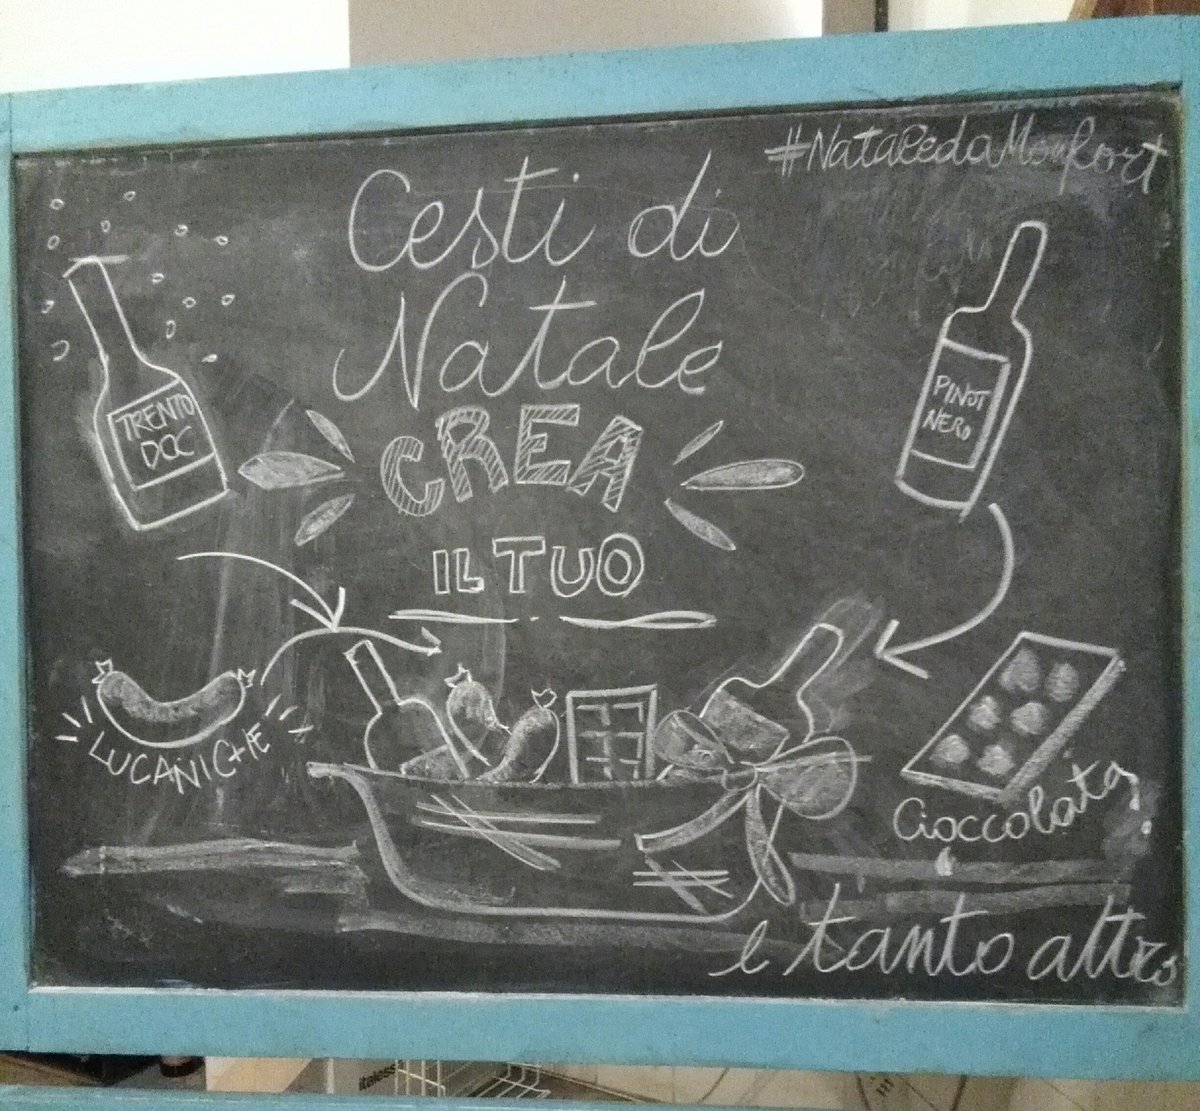 #NataledaMonfort
Cesti di
Natale
CREA
IL TUO
TRENTO
DOC
PINOT
NERO
LUCANICHE
Cioccolata
e tanto altro
italess